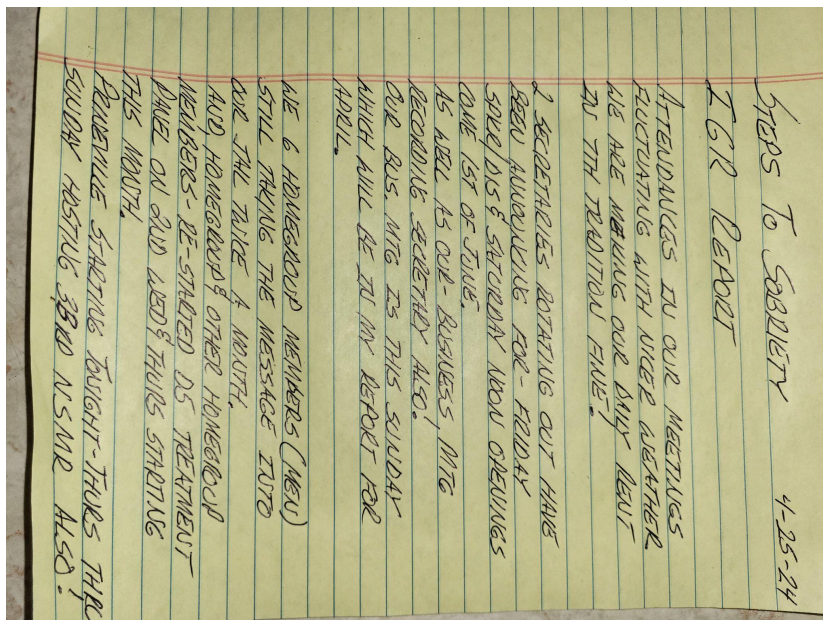 STEPS TO SOBRIETY 4-25-24
IGR REPORT
ATTENDANCES IN OUR MEETINGS
FLUCTUATING WITH NICER WEATHER
WE ARE MEETING OUR DAILY RENT
IN 7TH TRADITION FINE!
2 SECRETARIES ROTATING OUT HAVE
BEEN ANNOUNCING FOR - FRIDAY
5PM/DS & SATURDAY NOON OPENINGS
COME 1ST OF JUNE.
AS WELL AS OUR - BUSINESS MTG
RECORDING SECRETARY ALSO!
OUR BUS. MTG IS THIS SUNDAY
WHICH WILL BE IN MY REPORT FOR
APRIL.
WE 6 HOMEGROUP MEMBERS (MEN)
STILL TAKING THE MESSAGE INTO
OUR JAIL TWICE A MONTH.
AND, HOMEGROUP & OTHER HOMEGROUP
MEMBERS - RE-STARTED DS TREATMENT
PANE ON 2ND WED & THURS STARTING
THIS MONTH.
PRINEVILLE STARTING TONIGHT - THURS THRU
SUNDAY HOSTING 33RD NSMR ALSO!